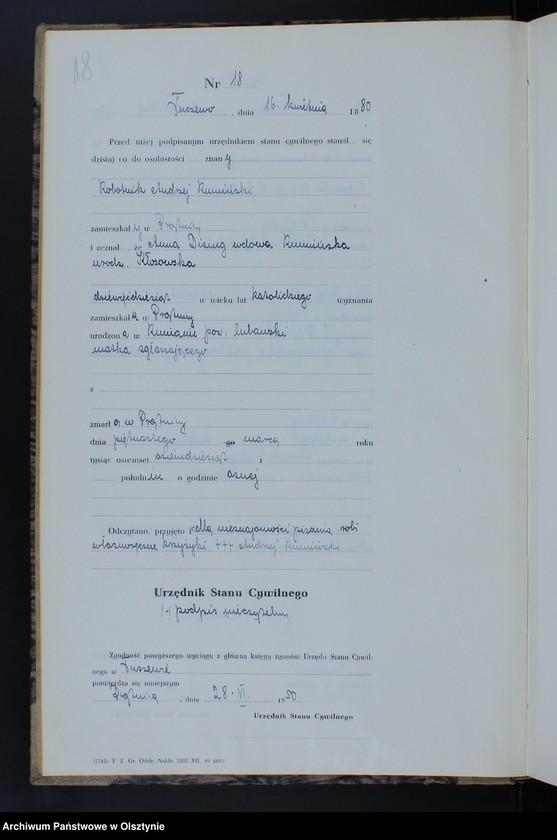 18
Nr 18
Tuszewo, dnia 16. kwietnia 1880
Przed niżej podpisanym urzędnikiem stanu cywilnego stawił się
dzisiaj co do osobistości znany
Robotnik Andrzej
zamieszkały w Prątnicy
i zeznał, że Anna wdowa
urodz. Kłosowska
dziewięćdziesiąt w wieku lat katolickiego wyznania
zamieszkała w Prątnicy
urodzona w pow. lubawski
matka zgłaszającego
z
zmarła w Prątnicy
dnia piętnastego -go marca roku
tysiąc osiemset osiemdziesiąt i
południu o godzinie ósmej
Odczytano, przyjęto i dla nieznajomości pisania robi
własnoręczne krzyżyki +++ Andrzej
Urzędnik Stanu Cywilnego
/-/ podpis nieczytelny
Zgodność powyższego wyciągu z główną księgą zgonów Urzędu Stanu Cywil-
nego w Tuszewie
potwierdza się niniejszym
Prątnica, dnia 28. VI. 1950
Urzędnik Stanu Cywilnego
(1742) T. Z. Gr. Oddz. Nakło 2202 XII. 49
Archiwum Państwowe w Olsztynie